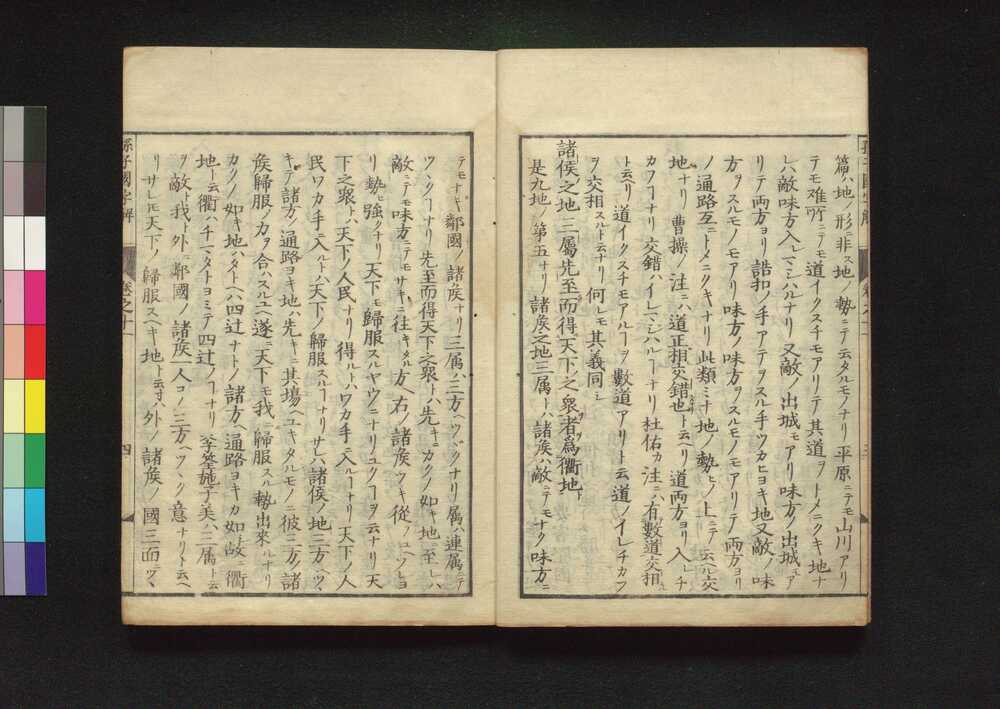 篇ハ地ノ形ニ非ス地ノ勢ニテ云タルモノナリ平原ニテモ山川アリ
テモ难所ニテモ道イクスチモアリテ其道ヲトメニクキ地ナ
レハ敵味方入レマシハルナリ又敵ノ出城モアリ味方ノ出城モア
リテ両方ヨリ詰扣ノ手アテヲスル手ツカヒヨキ地又敵ノ味
方ヲスルモノモアリ味方ノ味方ヲスルモノモアリテ両方ヨリ
ノ通路互ニトメニクキナリ此類ミナ地ノ勢ヒノ上ニテ云フ交
地ナリ曹操ノ注ニハ道正相交錯也ト云ヘリ道両方ヨリ入レチ
カフヿナリ交錯ハイレマシハルヿナリ杜佑カ注ニハ有數道交相
ト云リ道イクスチモアルヿヲ數道アリト云道ノイレチカフ
ヲ交相スルト云ナリ何レモ其義同シ
諸侯之地三屬先至而得天下之衆者為衢地
是九地ノ第五ナリ諸侯之地三属トハ諸侯ハ敵ニテモナク味方ニ
テモナキ鄰國ノ諸侯ナリ三属ハ三方ヘツヾクナリ属ハ連属ニテ
ツヾクヿナリ先至而得天下之衆トハ先キニカクノ如キ地ニ至レハ
敵ニテモ味方ニテモサキニ往キタル方ヘ右ノ諸侯ツキ從フユヘソレヨ
リ勢ヒ強クナリ天下モ歸服スルヤウニナリユクヿヲ云ナリ天
下之衆トハ天下ノ人民ナリ得ルトハワカ手ニ入ルヿナリ天下ノ人
民ワカ手ニ入ルトハ天下ノ歸服スルヿナリサレハ諸侯ノ地三方ヘツヾ
キテ諸方ノ通路ヨキ地ハ先キニ其塲ヘユキタルモノニ彼三方ノ諸
侯歸服ノ力ヲ合ハスルユヘ遂ニ天下モ我ニ歸服スル勢出來ルナリ
カクノ如キ地ハタトヘハ四辻ナトノ諸方ヘ通路ヨキカ如故ニ衢
地ト云衢ハチマタトヨミテ四辻ノヿナリ李筌施子美ハ三属ト云
ヲ敵ト我ト外ニ鄰國ノ諸侯一人コノ三方ヘツヾク意ナリト云ヘ
リサレモ天下ノ歸服スヘキ地ト云寸ハ外ノ諸侯ノ國三面ニツヾ
孫子國字解
卷之十一
四